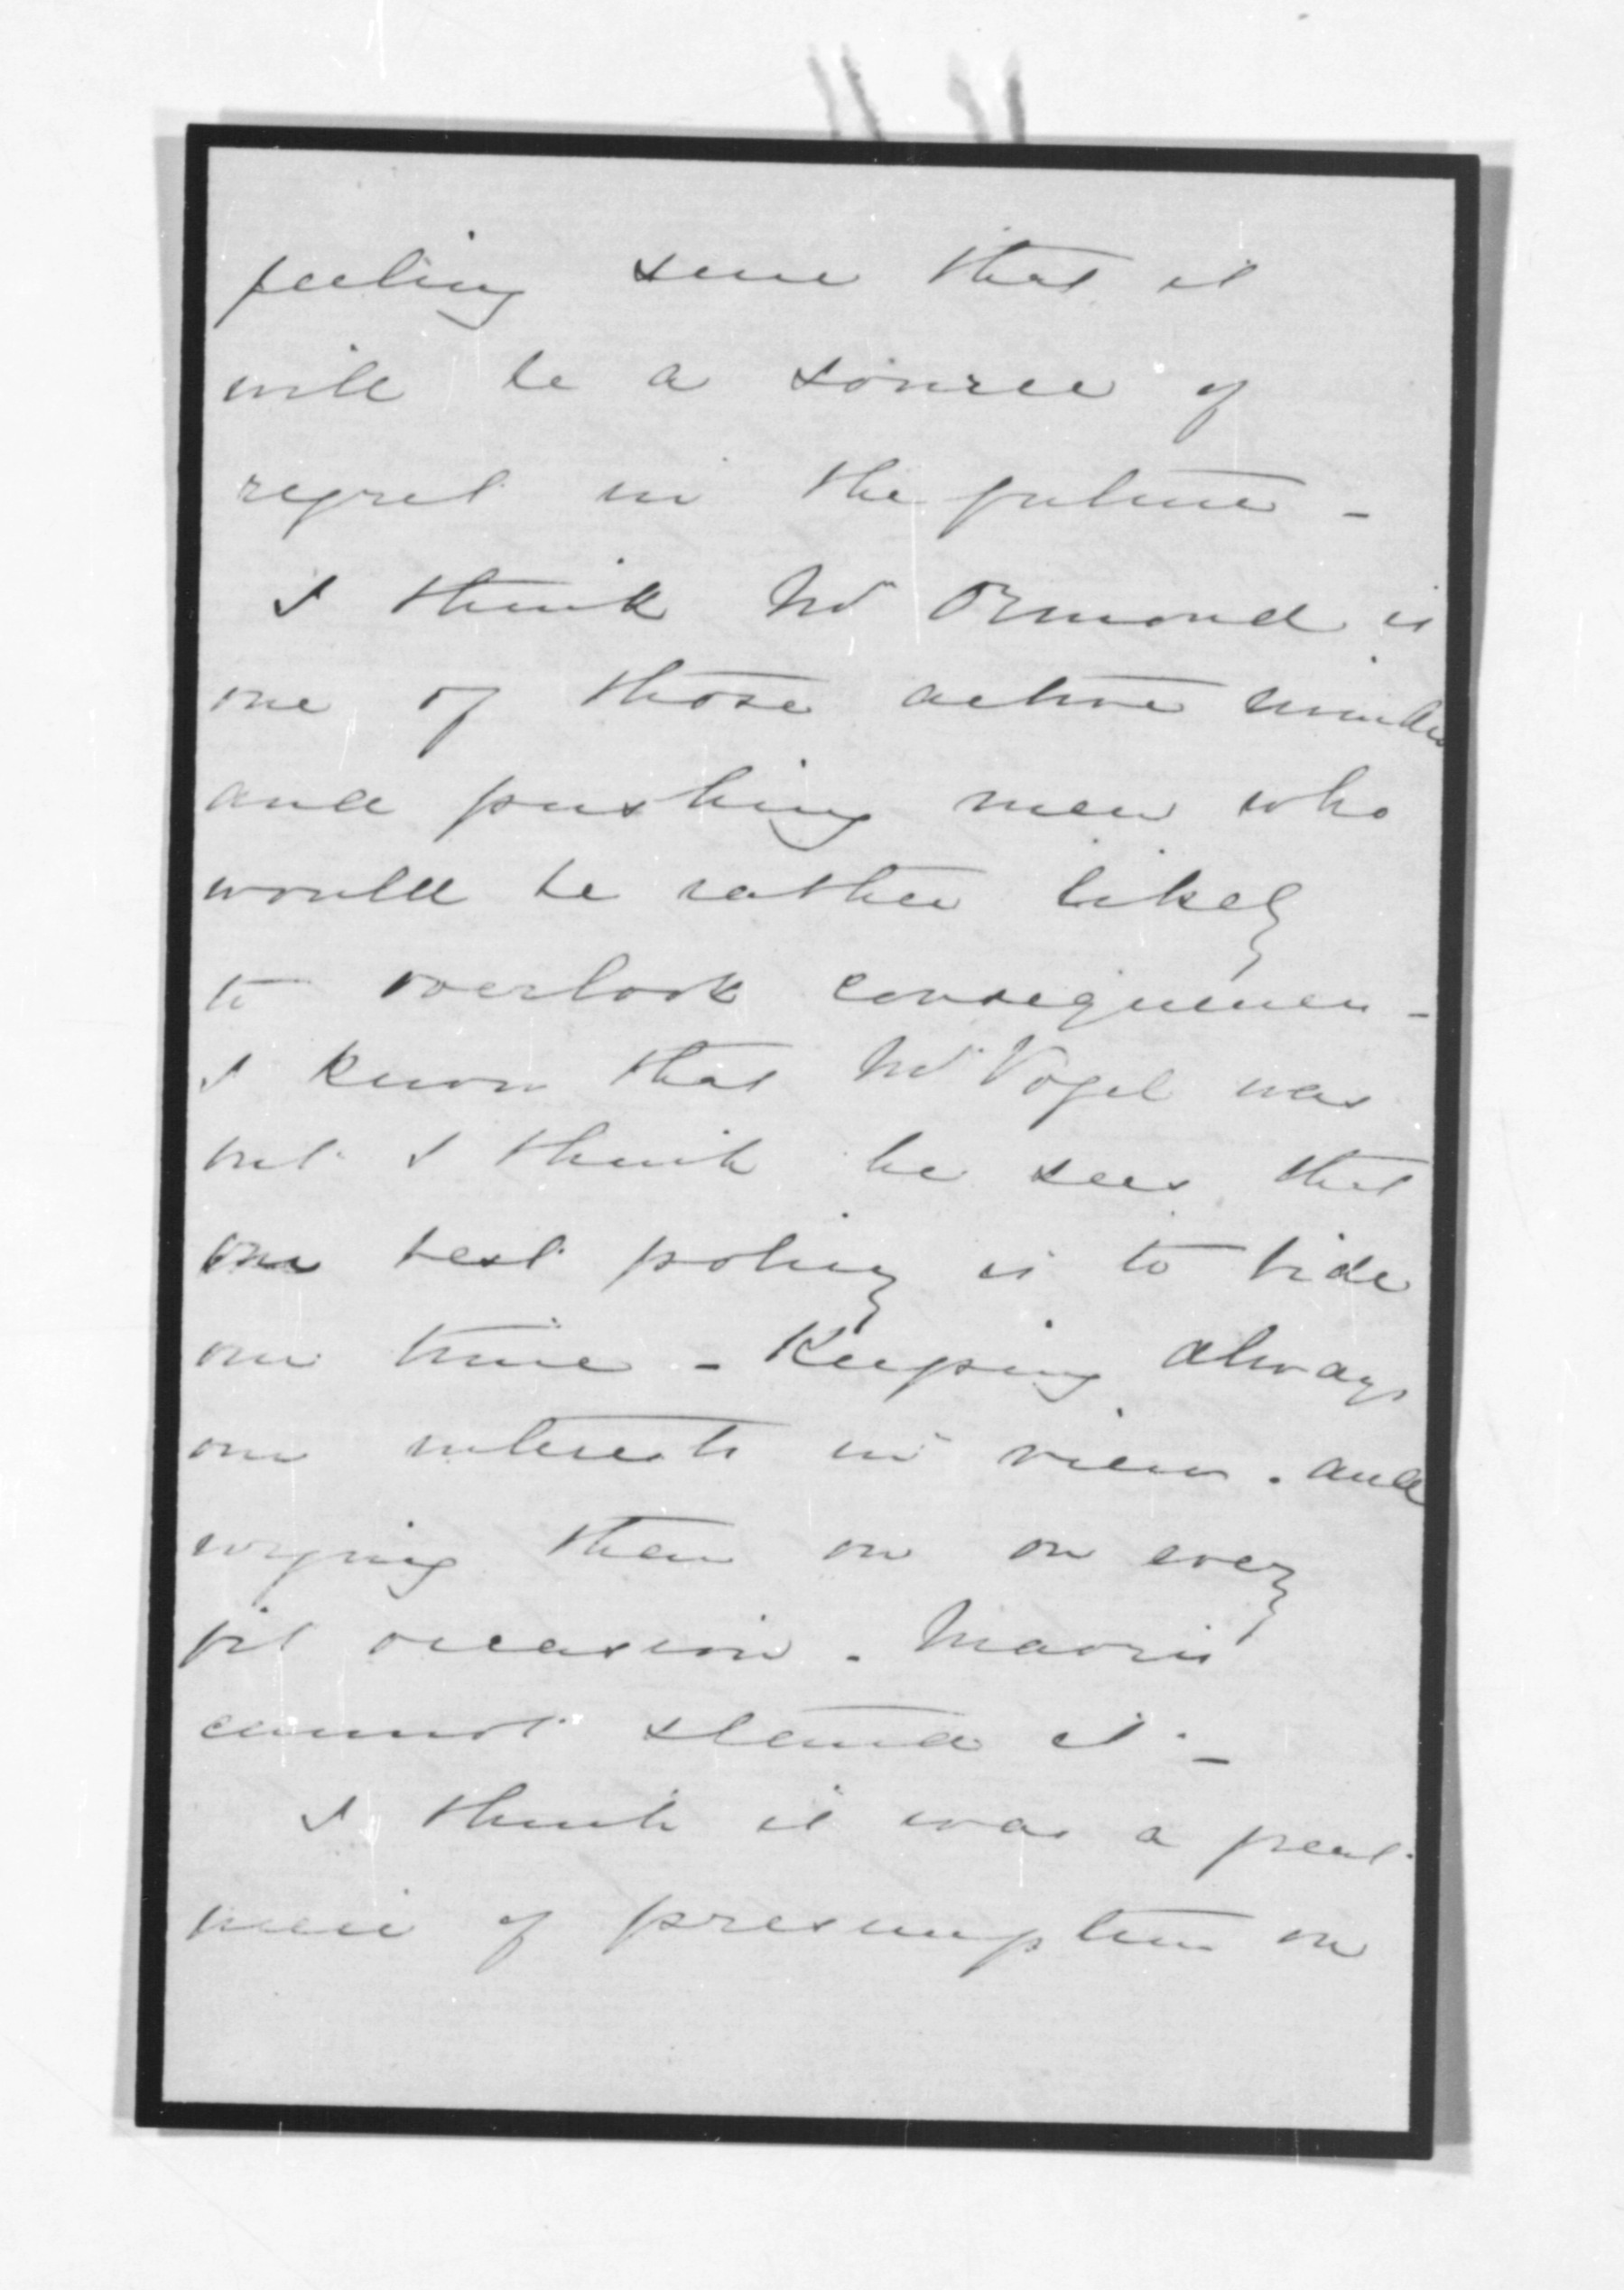 feeling sure that it
will be a source of
regret in the future -
I think Mr Ormond is
one of those active minded
and pushing men who
would be rather likely
to overlook consequences -
I know that Mr Vogel was
but I think he sees that
our best policy is to bide
our time - Keeping always
our interests in view. and
urging them on on every
fit occasion. Maoris
cannot stand it. -
I think it was a great
piece of presumption on